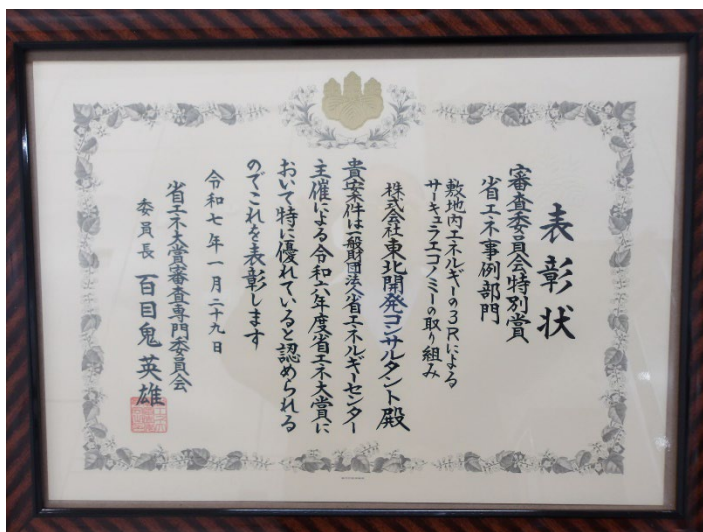 表彰状
審査委員会特別賞
省エネ事例部門
敷地内エネルギーの3Rによる
サーキュラエコノミーの取り組み
株式会社東北開発コンサルタント殿
貴案件は一般財団法人省エネルギーセンター
主催による令和六年度省エネ大賞に
おいて特に優れていると認められる
のでこれを表彰します
令和七年一月二十九日
省エネ大賞審査専門委員会
委員長 百目鬼英雄